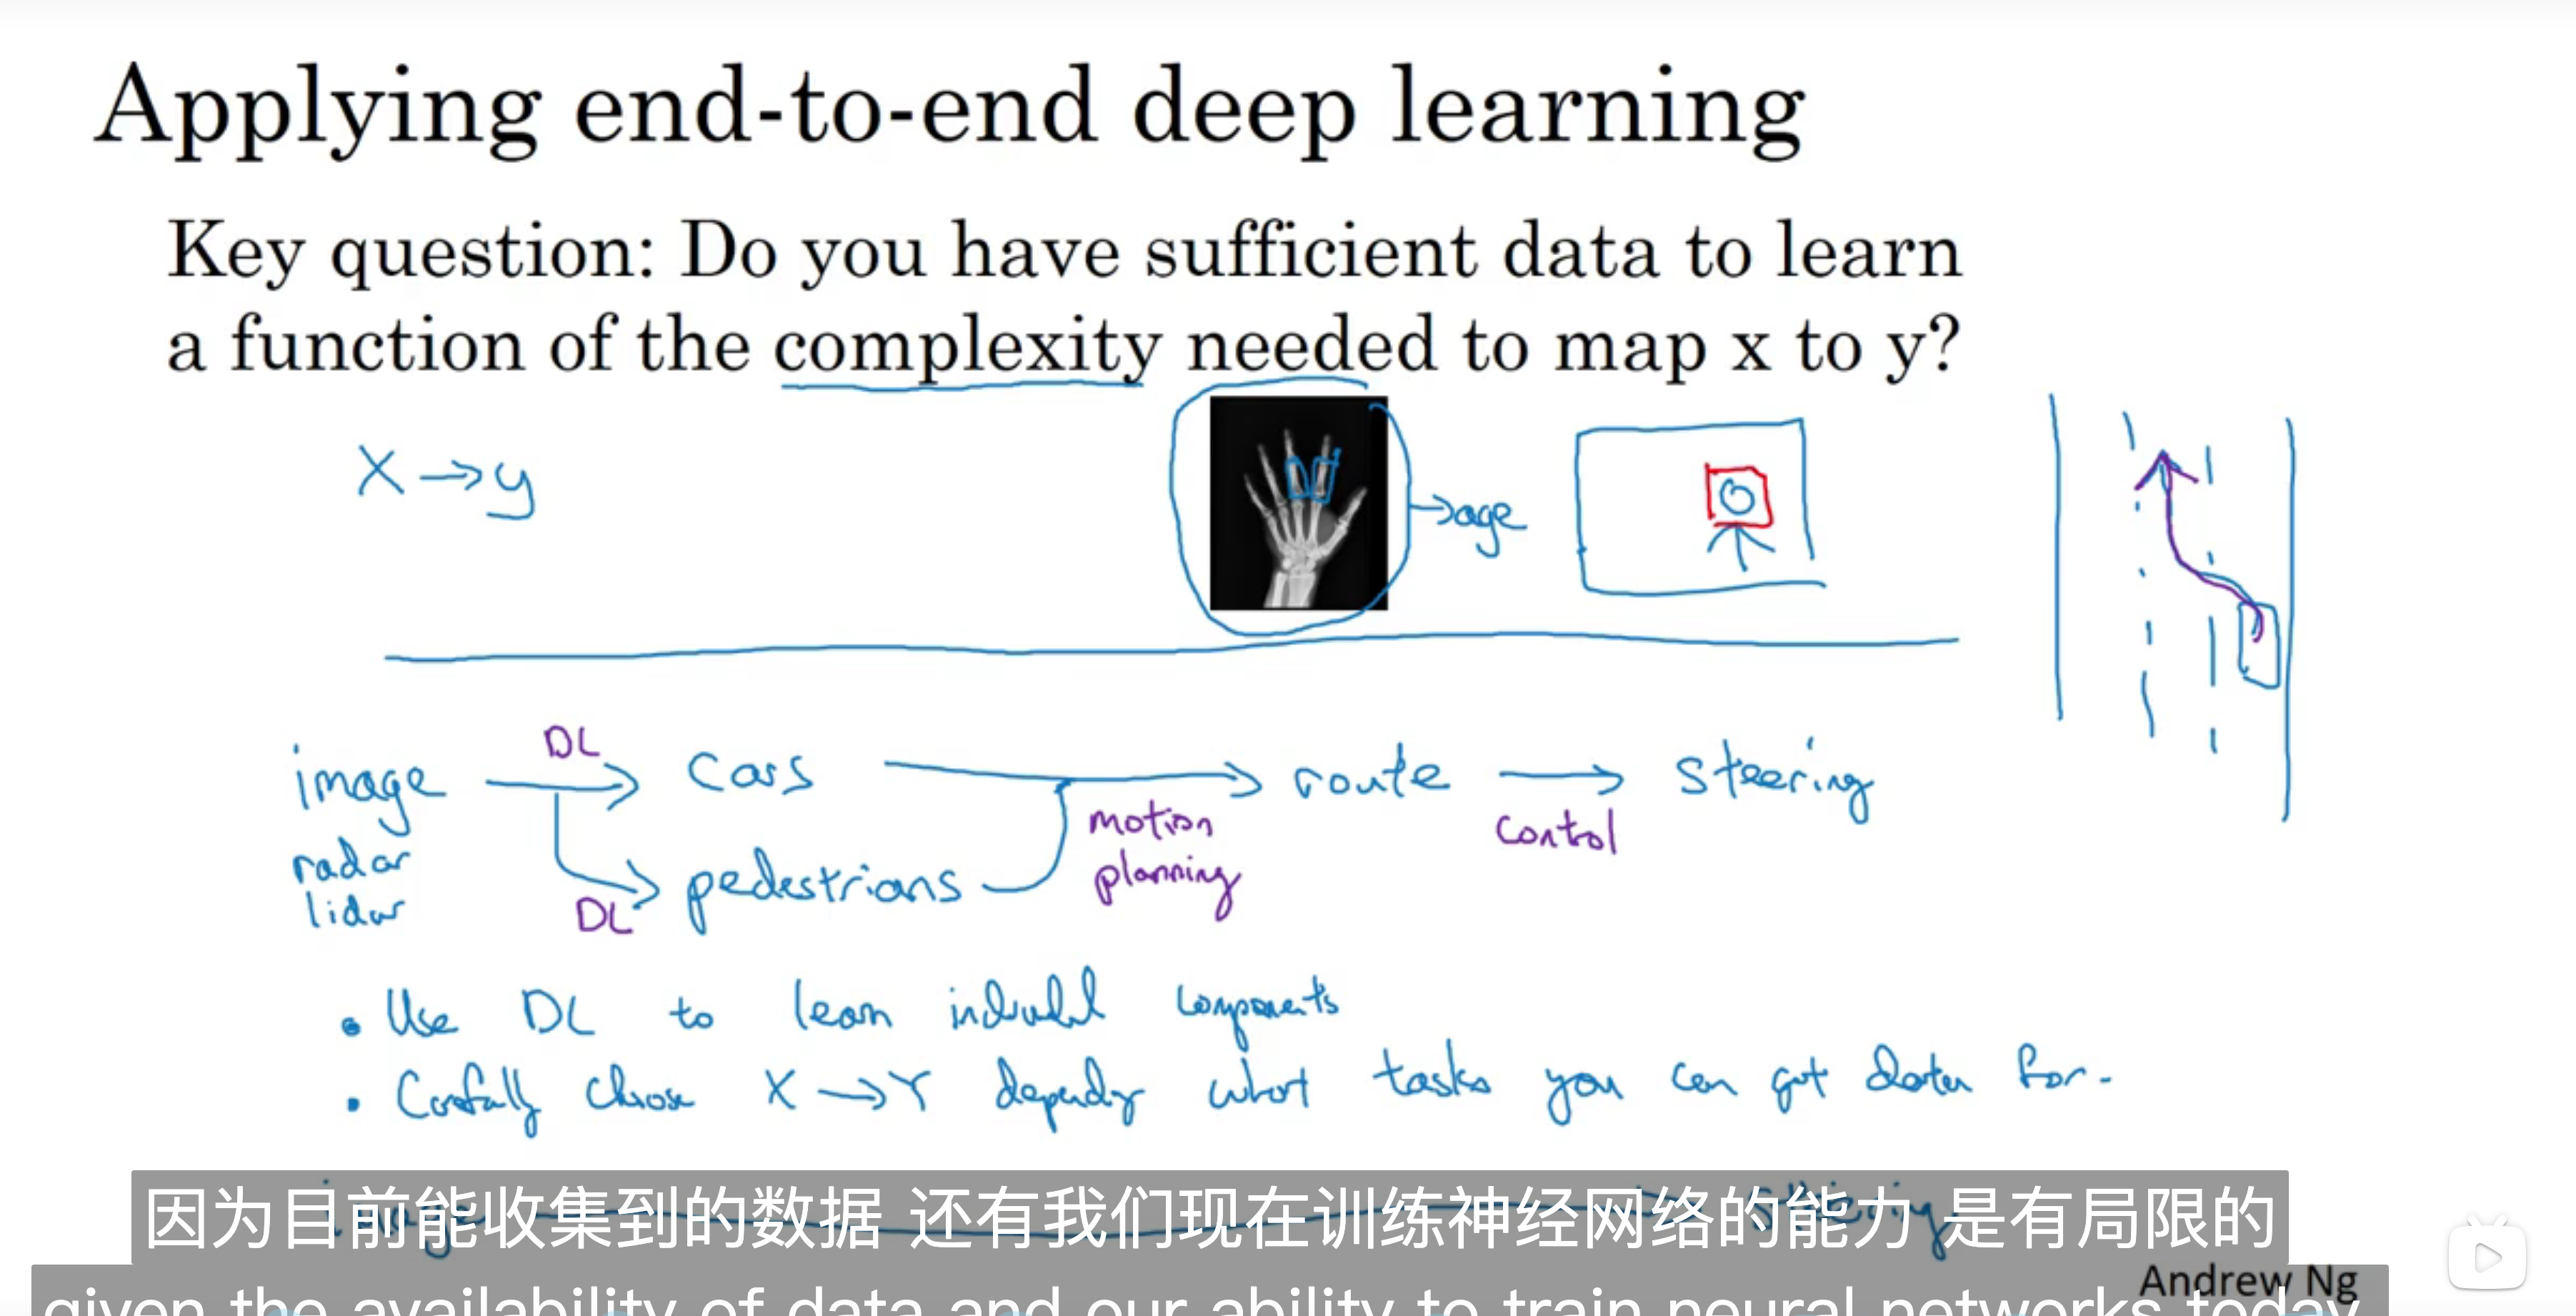 Applying end-to-end deep learning
Key question: Do you have sufficient data to learn
a function of the complexity needed to map x to y?
X → y
→ age
DL
image → cars → route → steering
radar
lidar
DL
pedestrians
motion
planning
control
• Use DL to learn components
• Carefully choose X → Y what tasks you can get data for.
因为目前能收集到的数据 还有我们现在训练神经网络的能力 是有局限的
Andrew Ng
given the availability of data and our ability to train neural networks today